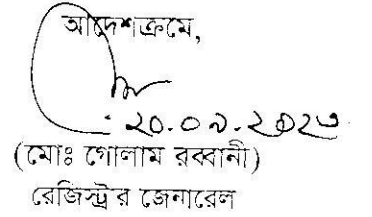 আদেশক্রমে,
২০.০৯.২০২৩
(মোঃ গোলাম রব্বানী)
রেজিস্ট্রার জেনারেল